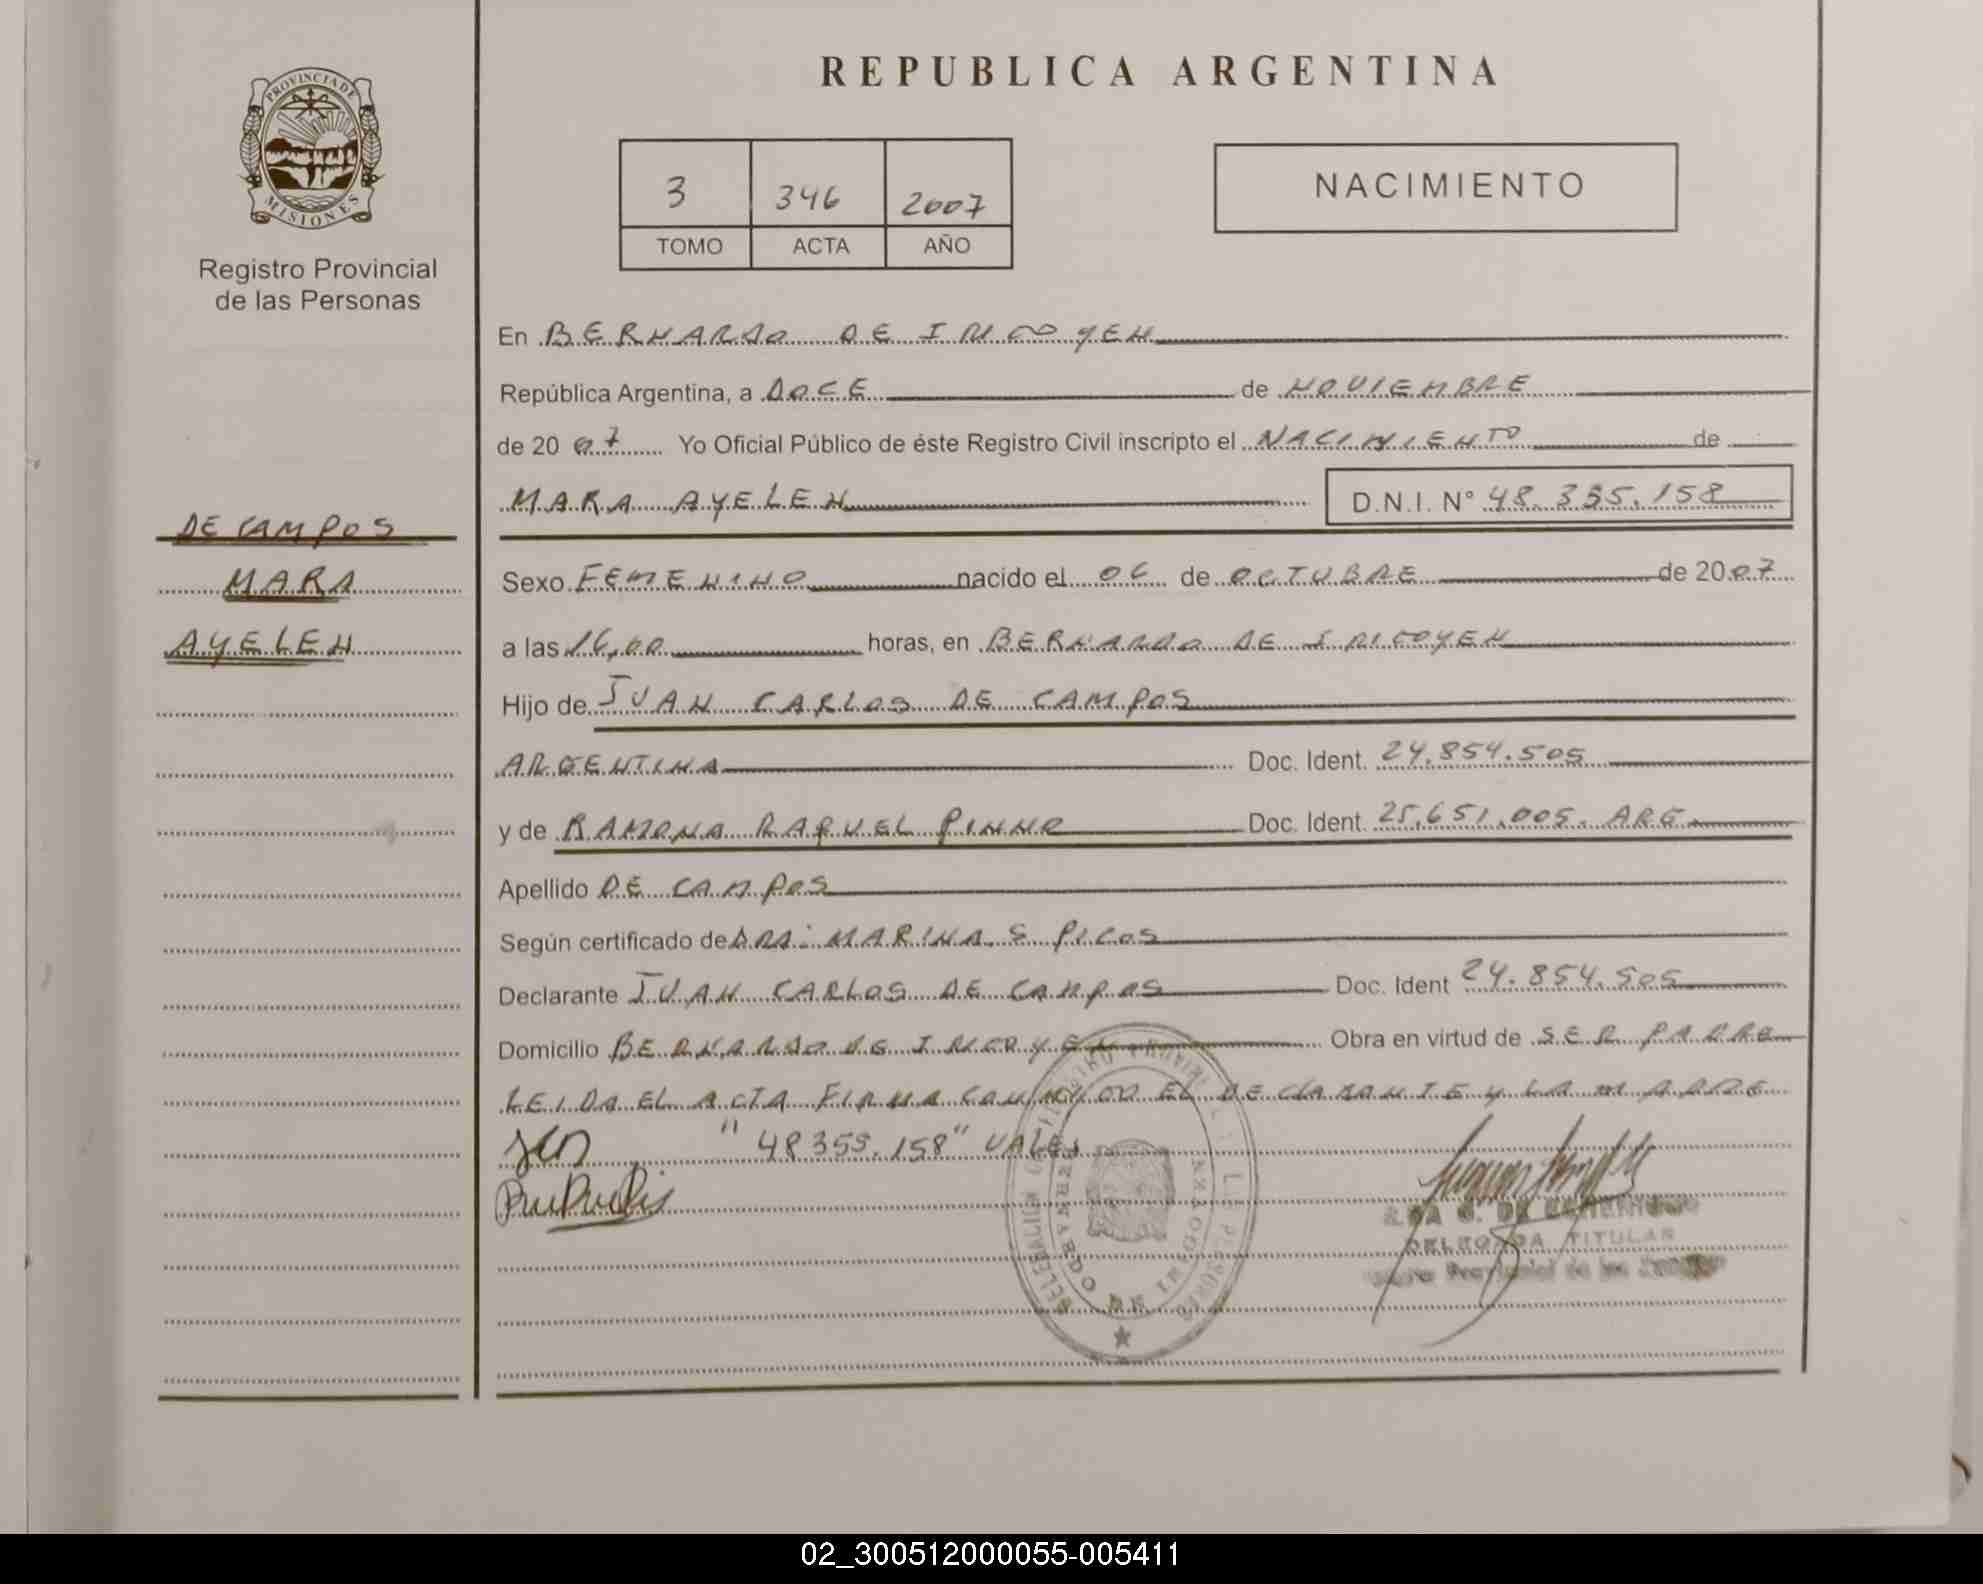 PROVINCIA DE
MISIONES
Registro Provincial
de las Personas
DE CAMPOS
MARA
AYELEN
REPUBLICA ARGENTINA
3 346 2007
TOMO ACTA AÑO
NACIMIENTO
En BERNARDO DE IRIGOYEN
República Argentina, a DOCE de NOVIEMBRE
de 20 07 Yo Oficial Público de éste Registro Civil inscripto el NACIMIENTO de
MARA AYELEN D.N.I. N° 48.355.158
Sexo FEMENINO nacido el 06 de OCTUBRE de 2007
a las 16,00 horas, en BERNARDO DE IRIGOYEN
Hijo de JUAN CARLOS DE CAMPOS
ARGENTINA Doc. Ident. 24.854.505
y de RAMONA RAQUEL PINNO Doc. Ident. 25.651.005. ARG.
Apellido DE CAMPOS
Según certificado de DRA: MARINA S PICOS
Declarante JUAN CARLOS DE CAMPOS Doc. Ident 24.854.505
Domicilio BERNARDO DE IRIGOYEN Obra en virtud de SER PADRE
LEIDA EL ACTA FIRMA CONMIGO EL DECLARANTE Y LA MADRE
"48355.158" VALE
DELEGADA TITULAR
02_300512000055-005411